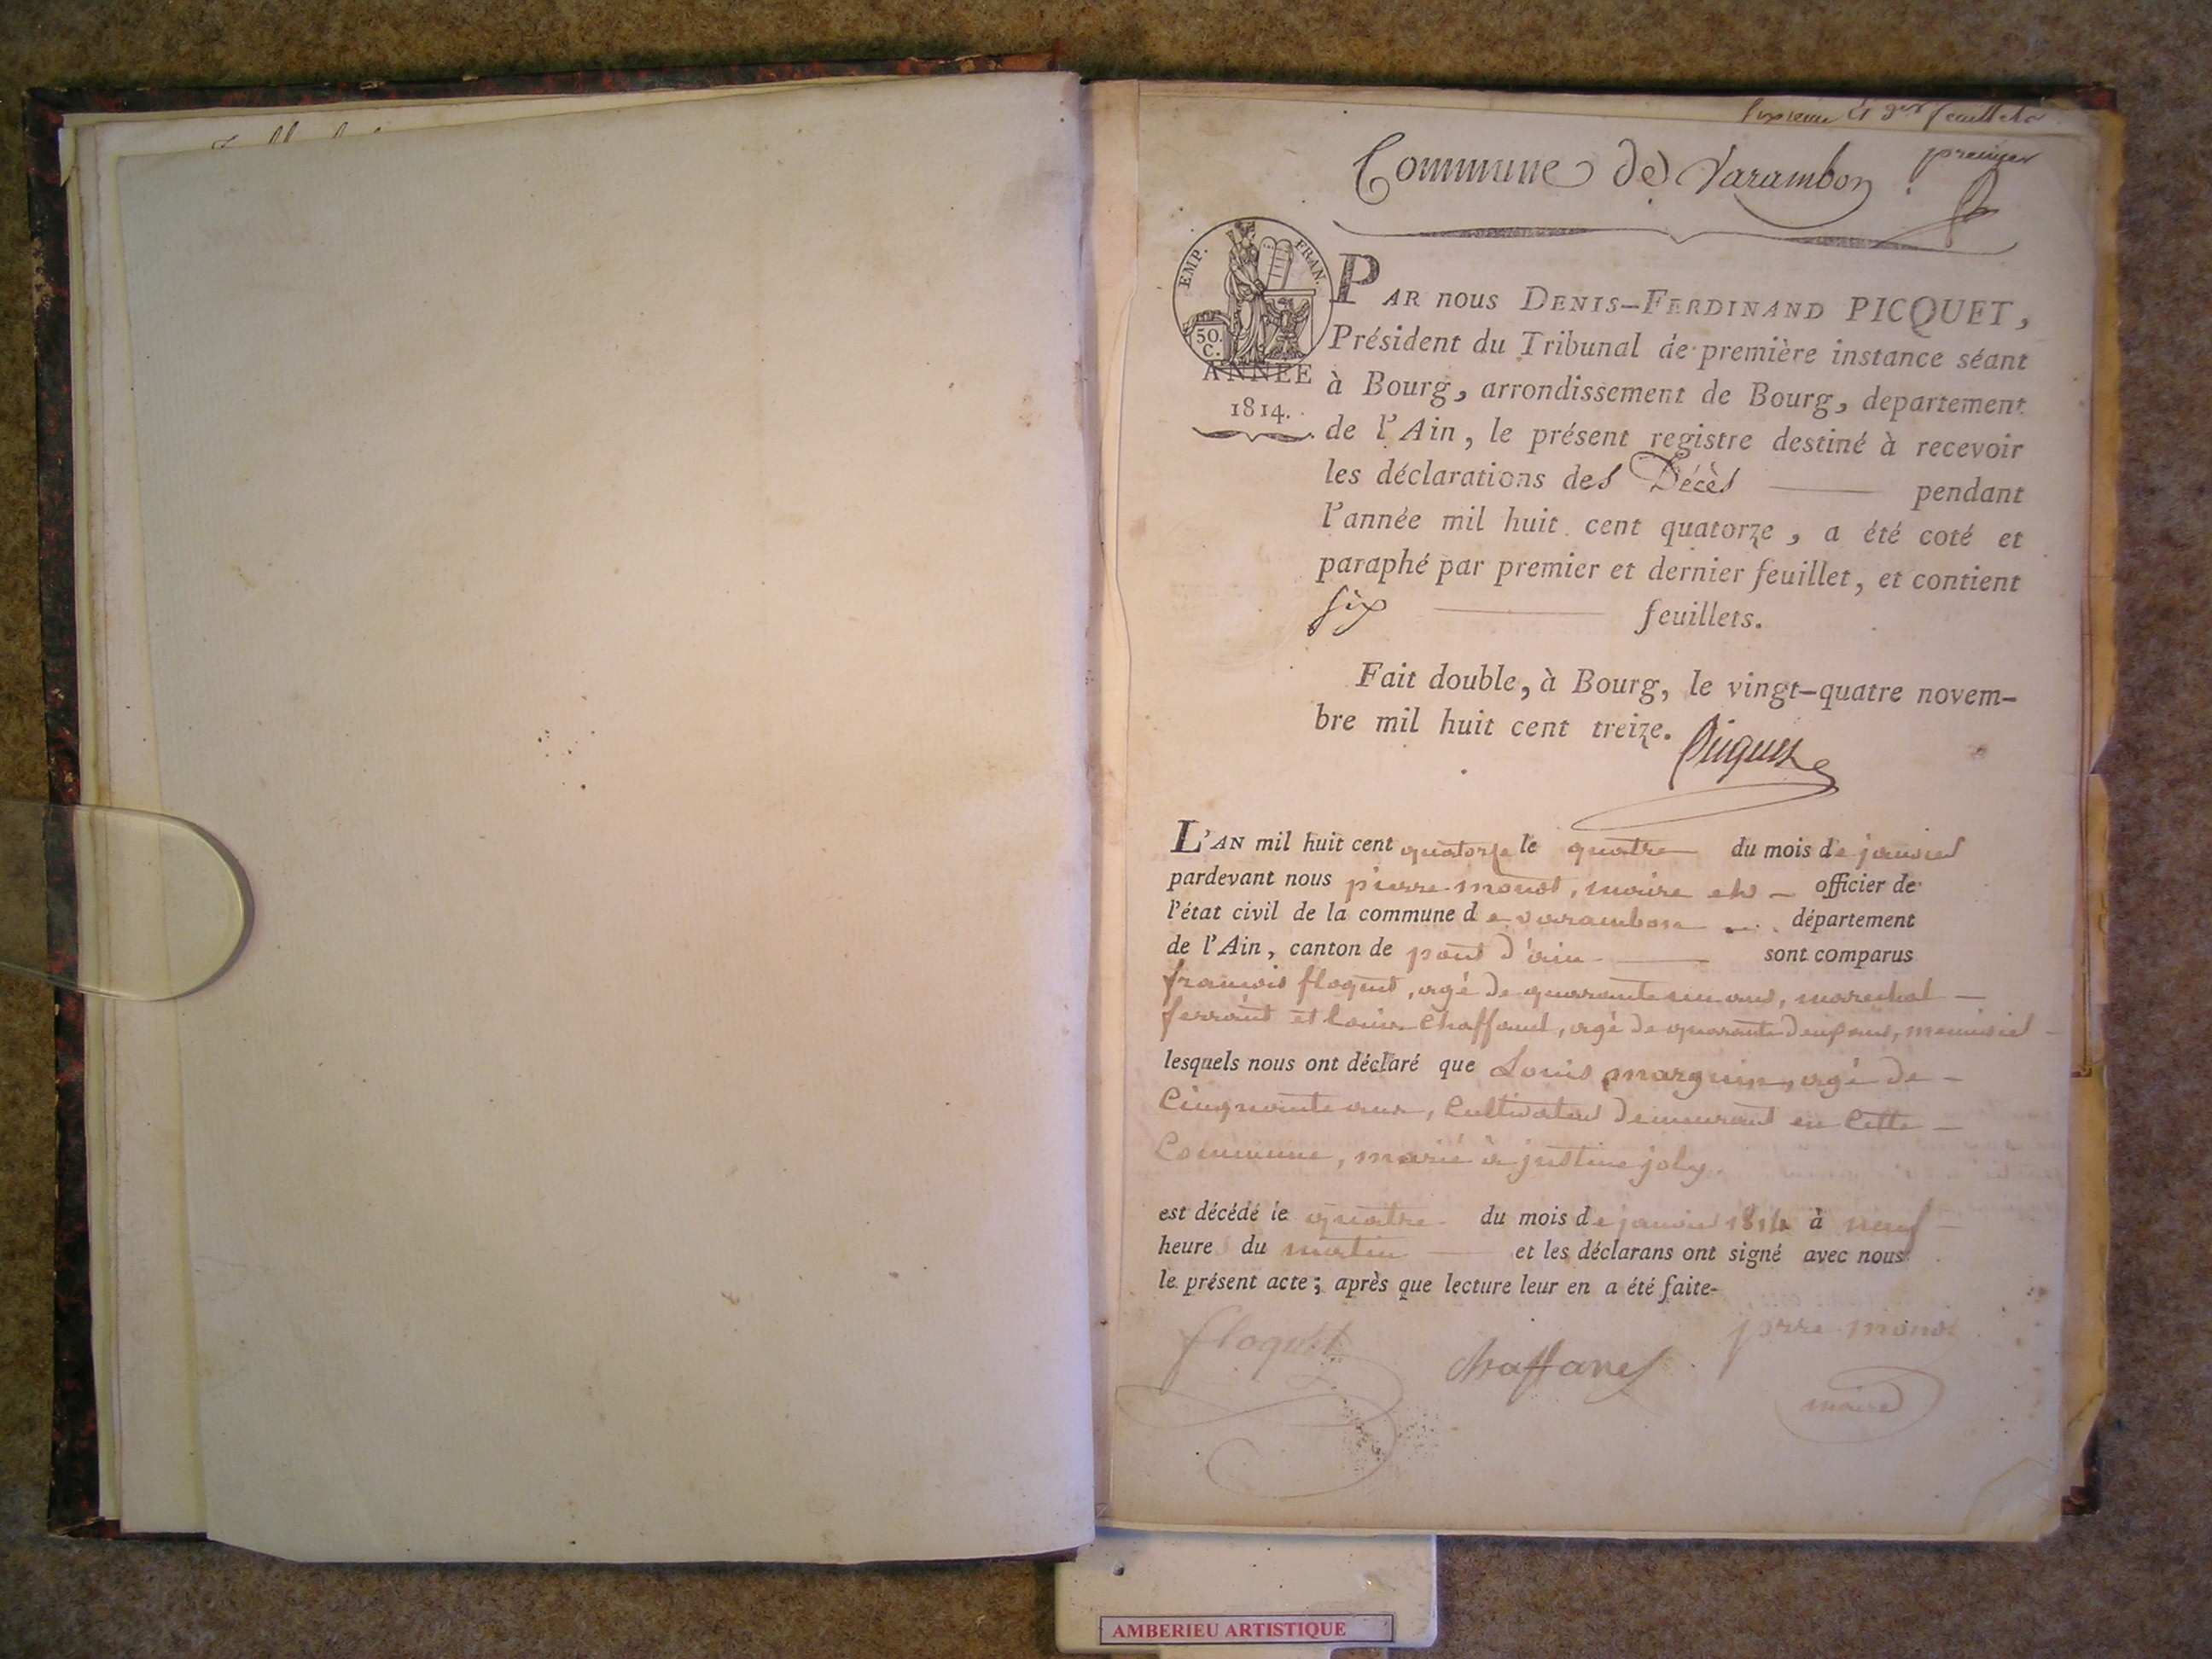 Sixieme et der feuillet
premier
Commune de Varambon
EMP. FRAN.
50. C.
ANNÉE
1814.
PAR nous DENIS-FERDINAND PICQUET,
Président du Tribunal de première instance séant
à Bourg, arrondissement de Bourg, departement
de l'Ain, le présent registre destiné à recevoir
les déclarations des Décès pendant
l'année mil huit cent quatorze, a été coté et
paraphé par premier et dernier feuillet, et contient
six feuillets.
Fait double, à Bourg, le vingt-quatre novem-
bre mil huit cent treize.
Picquet
L'AN mil huit cent quatorze le quatre du mois de janvier
pardevant nous pierre monod, maire et officier de
l'état civil de la commune de varambon département
de l'Ain, canton de pont d'ain sont comparus
francois floquet, agé de quarante un ans, marechal
ferrant et louis Chaffanel, agé de quarante deux ans, menuisier
lesquels nous ont déclaré que Louis marguin, agé de
Cinquante ans, Cultivateur demeurant en Cette
Commune, marié à justine joly.
est décédé le quatre du mois de janvier 1814 à neuf
heures du matin et les déclarans ont signé avec nous
le présent acte; après que lecture leur en a été faite-
floquet chaffanel pierre monod
maire
AMBERIEU ARTISTIQUE